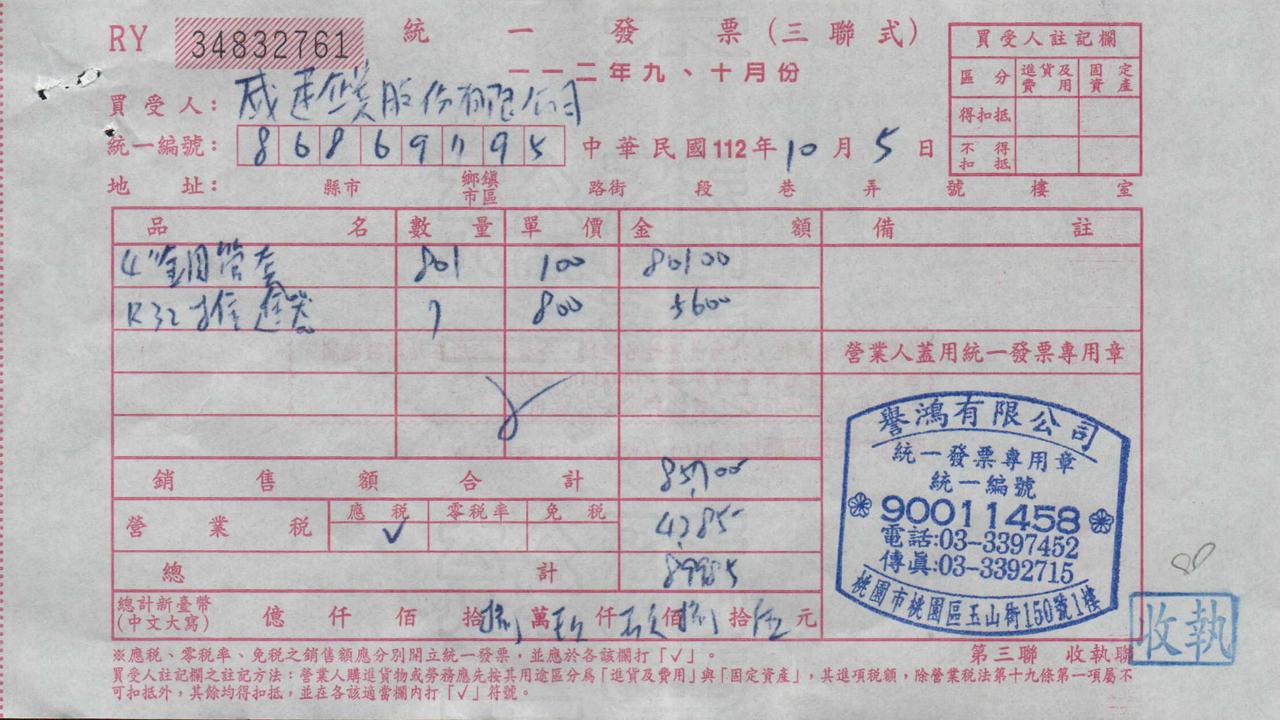 RY 34832761 統一發票(三聯式)
一一二年九、十月份
買受人註記欄
區分 進貨及費用 固定資產
得扣抵
不得扣抵
買受人: 股份有限公司
統一編號: 86869795 中華民國112年10月5日
地址: 縣市 鄉鎮市區 路街 段 巷 弄 號 樓 室
品名 數量 單價 金額 備註
4" 管套 801 100 80100
R32 7 800 5600
營業人蓋用統一發票專用章
銷售額合計 85,700
營業稅 應稅 ✓ 零稅率 免稅 4,285
總計 89985
總計新臺幣(中文大寫) 億 仟 佰 拾捌萬玖仟玖佰捌拾伍元
譽鴻有限公司
統一發票專用章
統一編號
90011458
電話:03-3397452
傳真:03-3392715
桃園市桃園區玉山街150號1樓
第三聯 收執聯
收執
※應稅、零稅率、免稅之銷售額應分別開立統一發票,並應於各該欄打「✓」。
買受人註記欄之註記方法:營業人購進貨物或勞務應先按其用途區分為「進貨及費用」與「固定資產」,其進項稅額,除營業稅法第十九條第一項屬不
可扣抵外,其餘均得扣抵,並在各該適當欄內打「✓」符號。